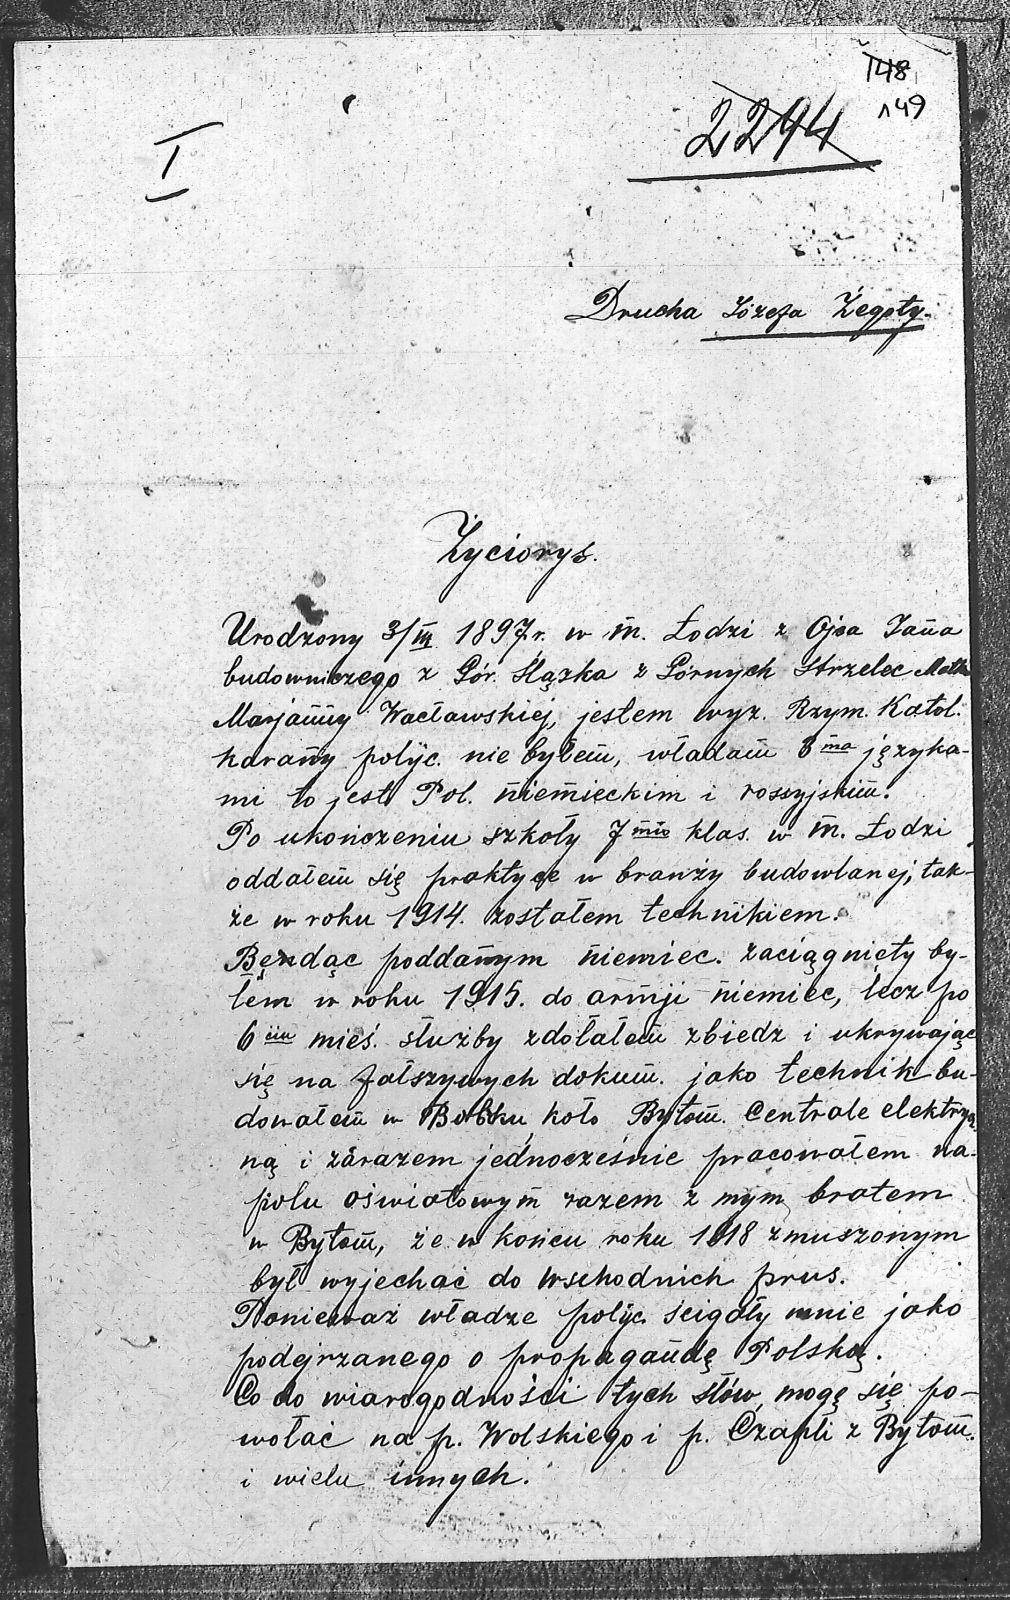 148
149
2294
I
Drucha Józefa Żegoty.
Życiorys.
Urodzony 3/III 1897 r. w m. Łodzi z Ojca Jana
budowniczego z Gór. Ślązka z Górnych Strzelec Matki
Marjanny Wacławskiej, jestem wyz. Rzym. Katol.
karany polic. nie byłem, władam 3 ma języka-
mi to jest Pol. niemieckim i rossyjskim.
Po ukończeniu szkoły 7 mio klas. w m. Łodzi
oddałem się praktyce w branży budowlanej, tak-
że w roku 1914. zostałem technikiem.
Będąc poddanym niemiec. zaciągnięty by-
łem w roku 1915. do armji niemiec, lecz po
6 ciu mieś. służby zdołałem zbiedz i ukrywając
się na fałszywych dokum. jako technik bu-
dowałem w Bobrku, koło Bytom. Centrale elektrycz
ną i zarazem jednocześnie pracowałem na-
polu oświatowym razem z mym bratem
w Bytom, że w końcu roku 1918 zmuszonym
był wyjechać do wschodnich prus.
Ponieważ władze polic. ścigały mnie jako
podejrzanego o propagandę Polską.
Co do wiarogodności tych słów, mogę się po-
wołać na p. Wolskiego i p. Czapli z Bytom.
i wielu innych.